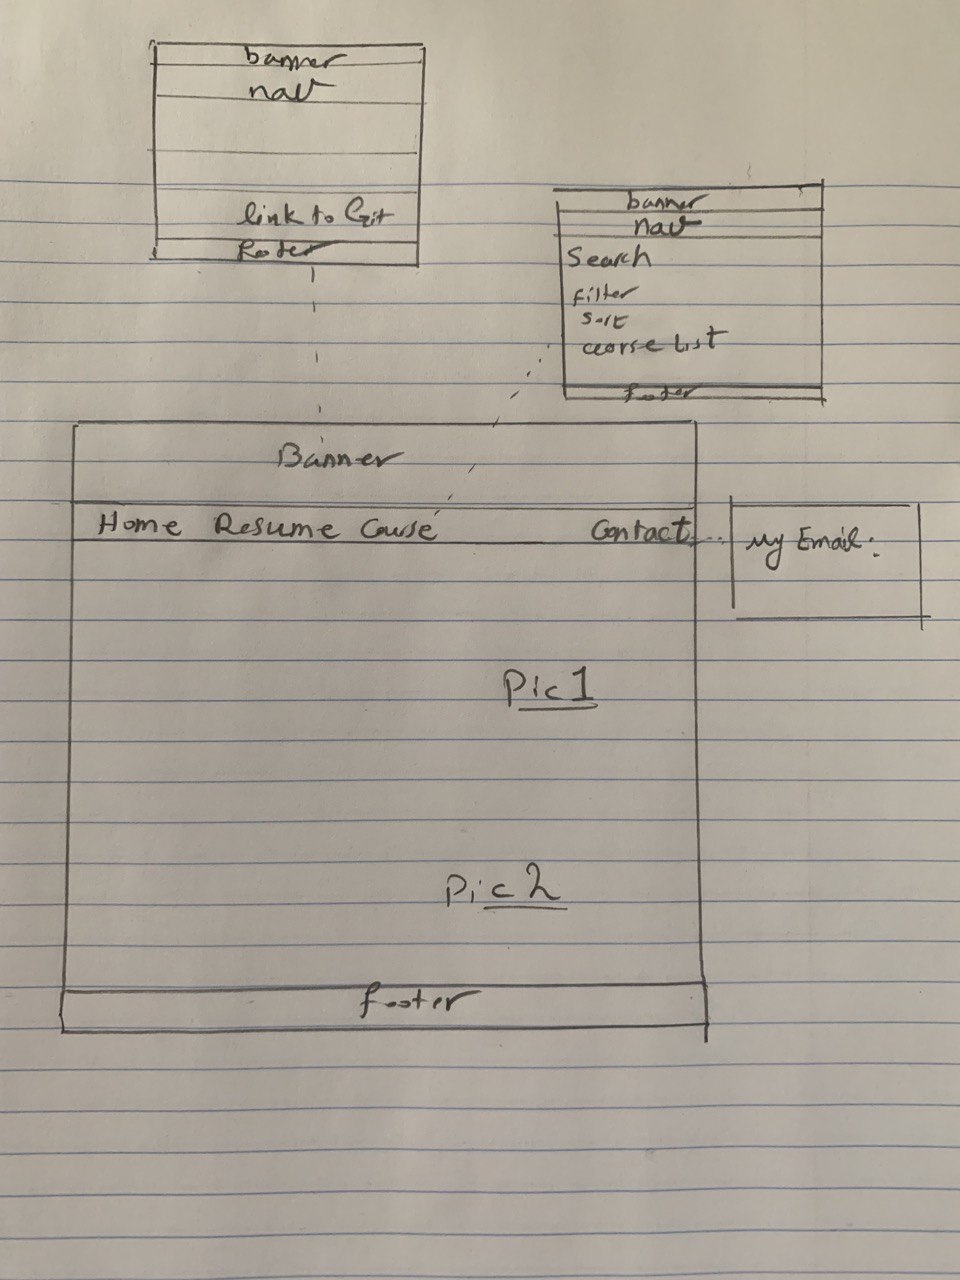 banner
nav
link to Git
footer
banner
nav
Search
filter
sort
courseList
footer
Banner
Home Resume Course Contact
My Email:
Pic1
Pic2
footer